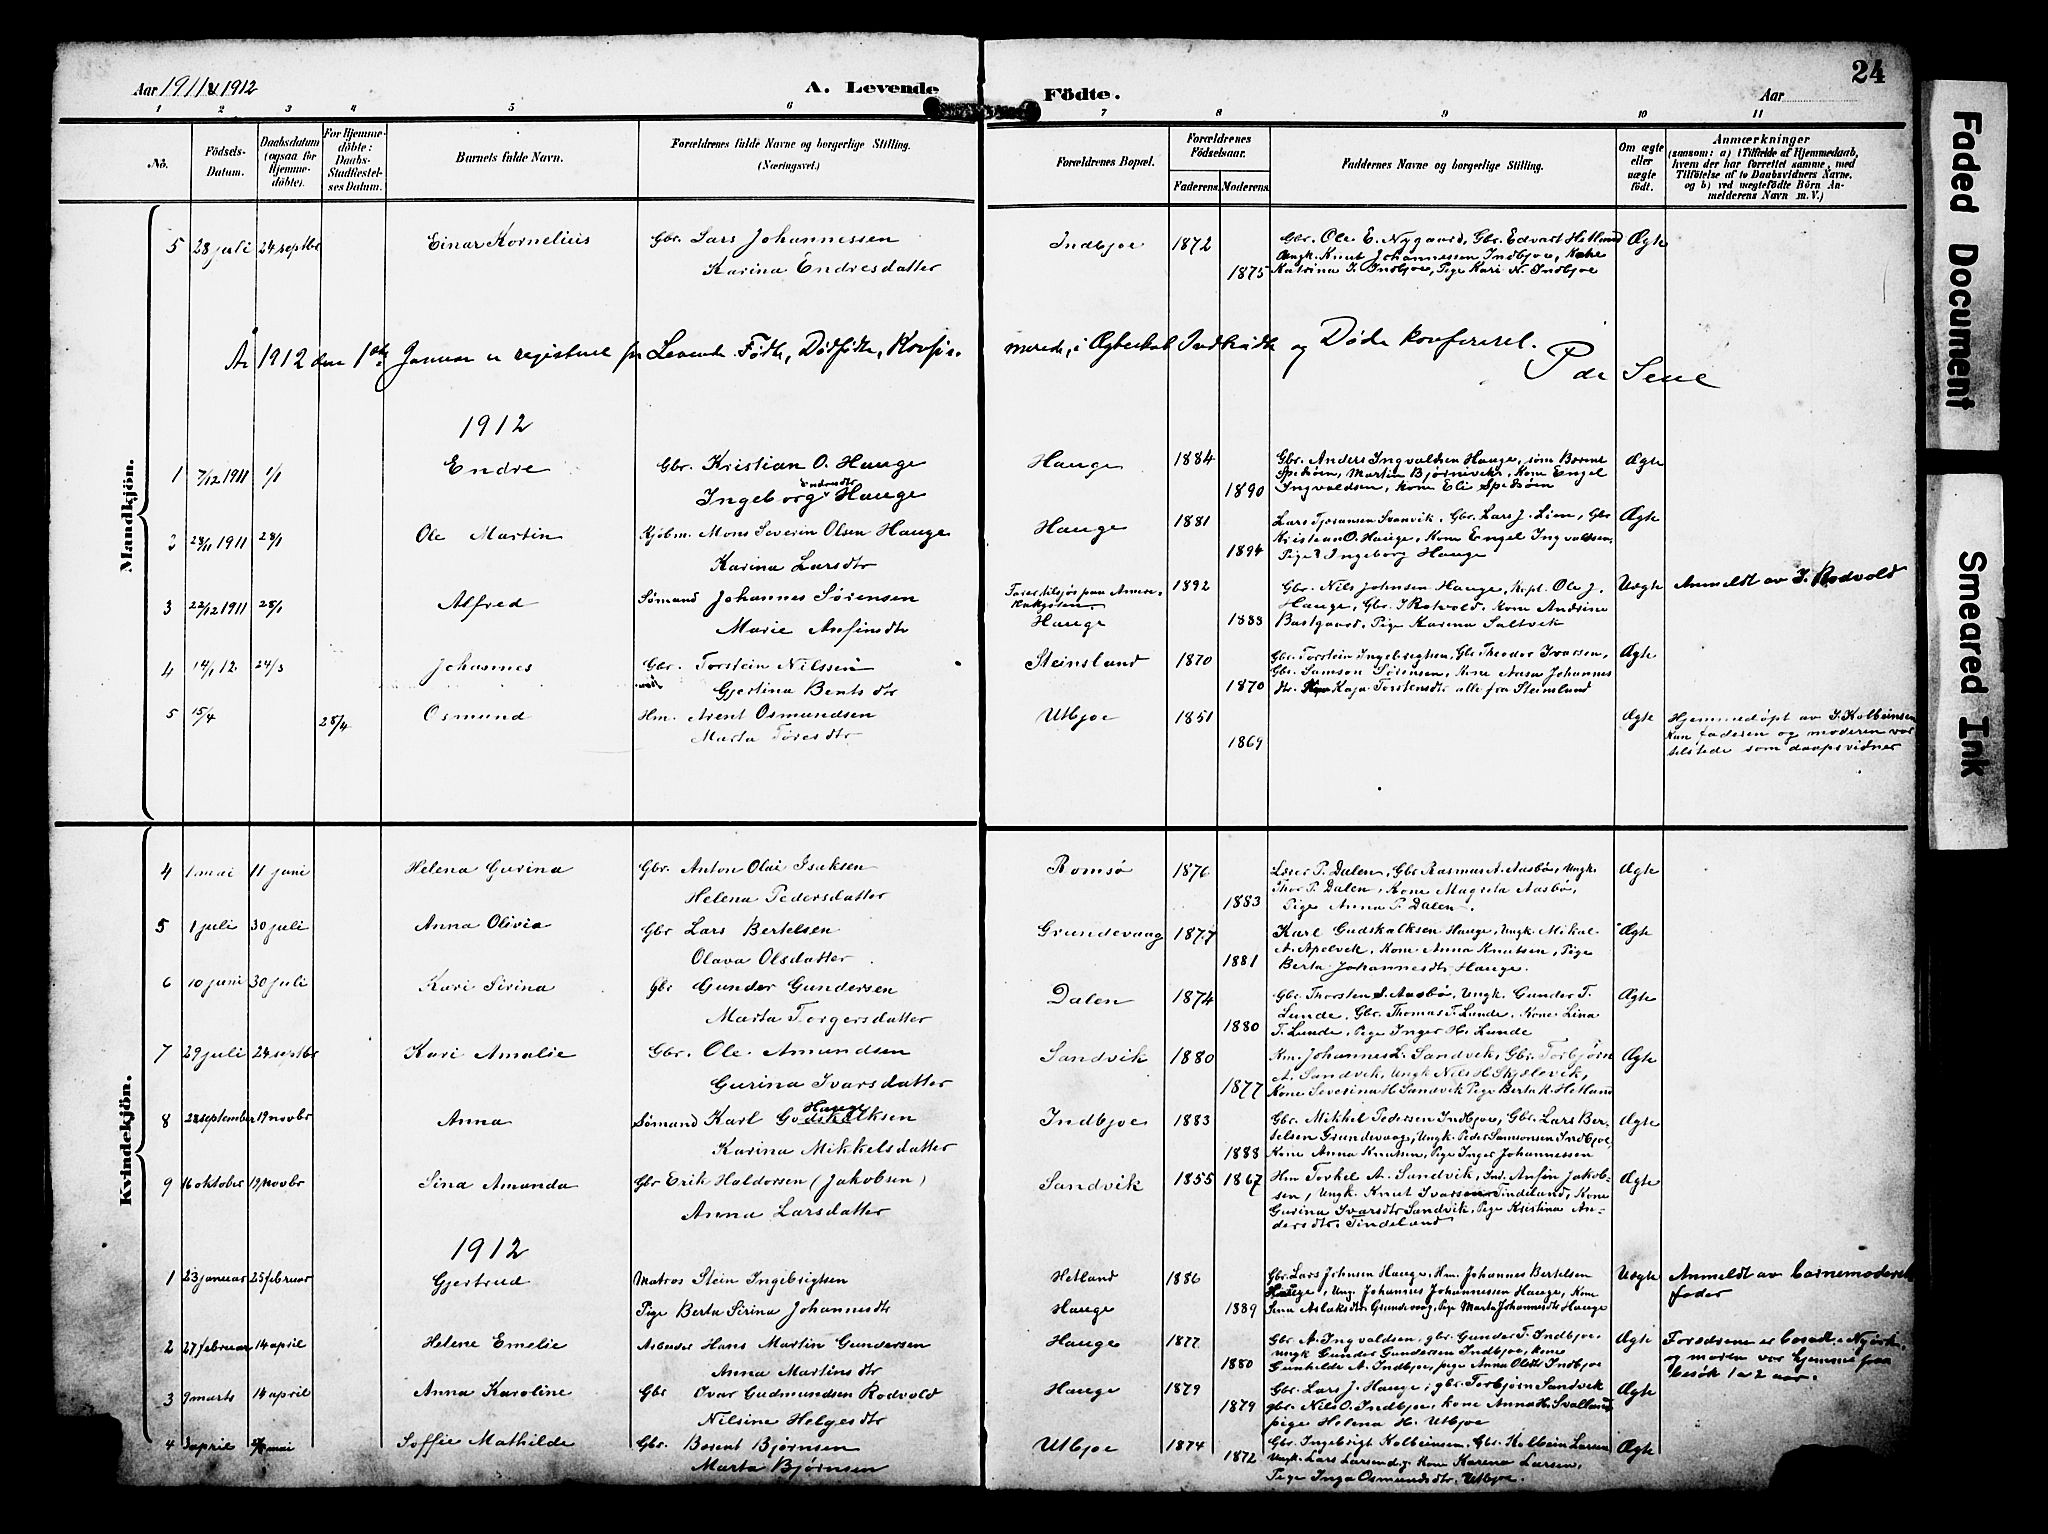 Aar 1911 & 1912 A. Levende Födte. Aar 24
1 2 3 4 5 6 7 8 9 10 11
No. Födsels-Datum. Daabsdatum (ogsaa for Hjemmedöbte). For Hjemmedöbte: Daabs-Stadfæstelses Datum. Barnets fulde Navn. Forældrenes fulde Navne og borgerlige Stilling. (Næringsvei.) Forældrenes Bopæl. Forældrenes Födselsaar. Faderens. Moderens. Faddernes Navne og borgerlige Stilling. Om ægte eller uægte födt. Anmærkninger
(saasom: a) i Tilfælde af Hjemmedaab, hvem der har forrettet samme, med Tilföielse af to Daabsvidners Navne, og b) ved uægtefödte Börn Anmelderens Navn m. V.)
Mandkjön.
5 28 juli 24 septbr Einar Kornelius Gbr. Lars Johannessen Indbjoe 1872 Gbr. Ole E. Nygaard, Gbr. Edvart Hetland Ægte
Karina Endresdatter 1875 Ungk. Knut Johannessen Indbjoe, Kone
Katrina J. Indbjoe, Pige Kari N. Indbjoe
År 1912 den 1ste Januar er registrene for Levende Fødte, Dødfødte, Konfir-merede, i Ægteskab Indtrådte og Døde konfereret.
P de Seue
1912
1 7/12 1911 1/1 Endre Gbr. Kristian O. Hauge Hauge 1884 Gbr. Anders Ingvaldsen Hauge, Ægte
Ingeborg Endresdtr Hauge 1890 Spidsöen, Martin Bjørnevik, Kone Engel
Ingvaldsen, Kone Eli Spidsöen
2 28/11 1911 28/1 Ole Martin Kjöbm. Mons Severin Olsen Hauge Hauge 1881 Lars Svanvik, Gbr. Lars J. Lien, Gbr Ægte
Karina Larsdtr 1894 Kristian O. Hauge, Kone Engel Ingvaldsen,
Pige Ingeborg Hauge
3 22/12 1911 28/1 Alfred Sömand Johannes Sörensen 1892 Gbr. Nils Johnsen Hauge, Kpt. Ole J. Uægte Anmeldt av J. Rodvold
Marie Anfindtr Hauge 1888 Hauge, Gbr. J Rotvold, Kone Andrine
Bastgaard, Pige Karina Saltvik
4 14/1 12. 24/3 Johannes Gbr. Torstein Nilssen Steinsland 1870 Gbr. Torstein Ingebrigtsen, Gbr Theodor Ivarsen, Ægte
Gjertina Bentsdtr 1870 Gbr. Samson Sörensen, Kone Aasa Johannes
dtr. Kaja Torstensdtr alle fra Steinsland
5 15/4 28/4 Osmund Hm. Arent Osmundsen Utbjoe 1851 Ægte Hjemmedöpt av J. Kolbeinsen
Marta Töresdtr 1869 Kun faderen og moderen var
tilstede som daapsvidner
Kvindekjön.
4 1 mai 11 juni Helena Gurina Gbr. Anton Olai Isaksen Romsö 1876 Læser P. Dalen, Gbr Rasmus A. Aasbö, Ungk. Ægte
Helena Pedersdatter 1883 Thor P. Dalen, Kone Magreta Aasbö,
Pige Anna P. Dalen.
5 1 juli 30 juli Anna Olivia Gbr Lars Bertelsen Grundevaag 1877 Karl Gudskalksen Hauge, Ungk. Mikal Ægte
Olava Olsdatter 1881 A. Apelvik, Kone Anna Knutsen, Pige
Berta Johannesdtr Hauge.
6 10 juni 30 juli Kari Sirina Gbr Gunder Gundersen Dalen 1874 Gbr. Thorsten S. Aasbö, Ungk. Gunder T. Ægte
Marta Torgersdatter 1880 Lunde, Gbr. Thomas T. Lunde, Kone Lina
T. Lunde, Pige Inger H. Lunde
7 29 juli 24 septbr Kari Amalie Gbr. Ole Amundsen Sandvik 1880 Km. Johannes L. Sandvik, Gbr. Torbjörn Ægte
Gurina Ivarsdatter 1877 A. Sandvik, Ungk Nils H. Skjølevik,
Kone Severina H Sandvik Pige Berta K. Hetland
8 28 september 19 novbr Anna Sömand Karl Godskalksen Hauge Indbjoe 1883 Gbr. Mikkel Pedersen Indbjoe, Gbr. Lars Ber- Ægte
Karina Mikkelsdatter 1888 telsen Grundevaag, Ungk. Peder Samsonsen Indbjoe,
Kone Anna Knutsen, Pige Inger Johannessen
9 16 oktober 19 novbr Sina Amanda Gbr Erik Haldorsen (Jakobsen) Sandvik 1855 1867 Hm Torkel A. Sandvik, Ind. Anfin Jakob- Ægte
Anna Larsdatter sen, Ungk. Knut Ivarsen Tindeland, Kone
Gurina Ivarsdtr Sandvik, Pige Kristina An-
dersdtr. Tindeland
1912
1 23 januar 25 februar Gjertrud Matros Stein Ingebrigtsen Hetland 1886 Gbr. Lars Johnsen Hauge, Hm. Johannes Bertelsen Uægte Anmeldt av barnemoderens
Pige Berta Sirina Johannesdtr Hauge 1889 Hauge, Ung. Johannes Johannessen Hauge, Kone fader
Sina Aslaksdtr Grundevaag, Pige Marta Johannesdtr Hauge
2 27 februar 14 april Helene Emelie Arbeider Hans Martin Gundersen Hauge 1877 Gbr. A. Ingvaldsen, gbr. Gunder T. Indbjoe, Ægte Forældrene er bosat i Nyørk
Anna Martinsdtr 1880 ungk Gunder Gundersen Indbjoe, kone og moren var hjemme paa
Gunhilde A. Indbjoe, pige Anna Olsdtr Indbjoe besök 1 a 2 aar.
3 9 marts 14 april Anna Karoline Gbr Ivar Gudmundsen Rodvold Hauge 1879 Gbr. Lars J. Hauge, gbr Torbjörn Sandvik Ægte
Nilsine Helgesdtr 1879 gbr. Nils O. Indbjoe, kone Anna H. Svalland
pige Helena H. Utbjoe
4 3 april mai Soffie Mathilde Gbr. Berent Bjørnsen Utbjoe 1874 Gbr. Ingebrigt Kolbeinsen, Gbr. Kolbein Larsen Ægte
Marta Bjørnsen 1872 Ungk. Lars Larsen, Kone Karena Larsen,
Pige Inga Osmundsdtr. Utbjoe.
Faded Document
Smeared Ink